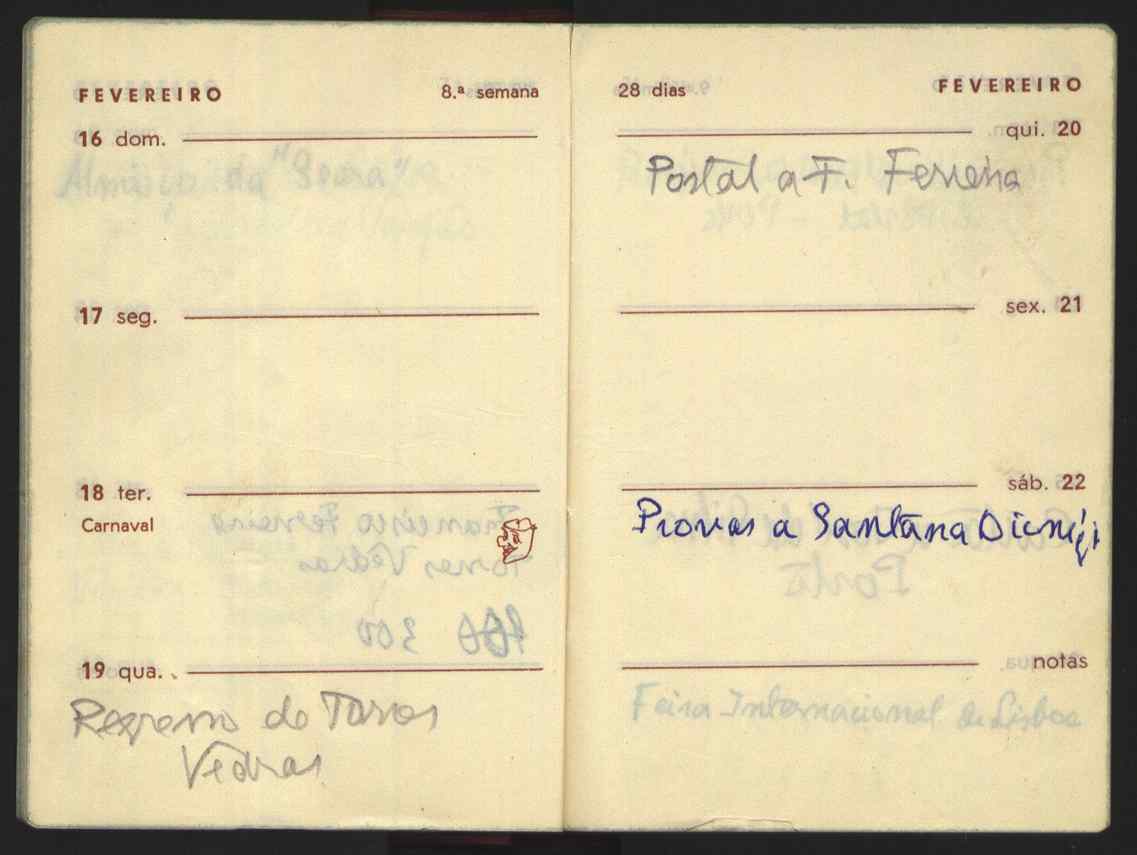 FEVEREIRO 8.ª semana
16 dom.
da "Seara"
17 seg.
18 ter.
Carnaval
19 qua.
Regresso de Torres
Vedras
28 dias FEVEREIRO
qui. 20
Postal a F. Ferreira
sex. 21
sáb. 22
Provas a Santana Dionísi
notas
Feira Internacional de Lisboa